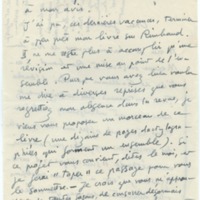 à mon avis.
J'ai pu, ces dernières vacances, terminer
à peu près mon livre sur Rimbaud.
Il ne me reste plus à accomplir qu'une
révision et une mise au point de l'en-
semble. Puisque vous avez bien voulu
me dire à diverses reprises que vous
regrettiez mon absence dans la revue, je
viens vous proposer un morceau de ce
livre (une dizaine de pages dactylogra-
phiées qui forment un ensemble). Si
ce projet vous convient, dites-le moi, et
je ferai "taper" ce passage pour vous
le soumettre. Je crois que vous